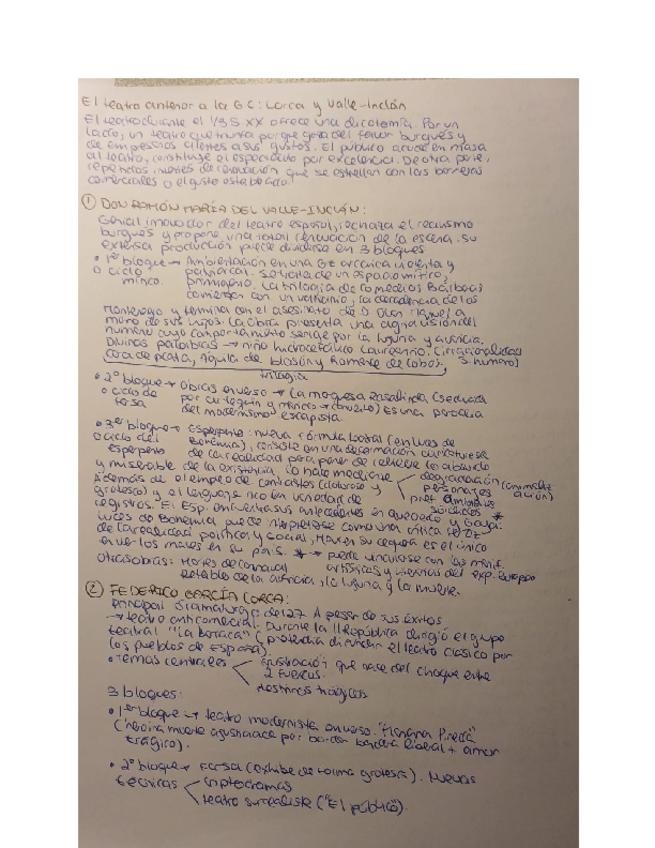 El teatro anterior a la GC: Lorca y Valle-Inclán
El teatro durante el 1/3 S XX ofrece una dicotomía. Por un
lado, un teatro que triunfa porque goza del favor burgués y
de empresarios atentos a sus gustos. El público acude en masa
al teatro, constituye el espectáculo por excelencia. De otra parte,
repetidos intentos de renovación que se estrellan con las barreras
comerciales o el gusto establecido.
① DON RAMÓN MARÍA DEL VALLE-INCLÁN:
Genial innovador del teatro español, rechaza el realismo
burgués y propone una total renovación de la escena. Su
extensa producción puede dividirse en 3 bloques
• 1er bloque → Ambientación en una Gz arcaica violenta y
o ciclo patriarcal. Se trata de un espacio mítico,
mítico. primigenio. La trilogía de Comedias Bárbaras
comienza con un , la decadencia de los
Montenegro y termina con el asesinato de D Juan Manuel a
mano de sus hijos. La obra presenta una agria visión del
humano cuyo comportamiento se rige por la lujuria y avaricia.
Divinas palabras → niño hidrocefálico Laureanino. (irracionalidad
Cara de plata, Águila de blasón y Romance de lobos. s. humano)
trilogía
• 2º bloque → Obras en verso → La marquesa Rosalinda (seducida
o ciclo de por Arlequín y marido → ) Es una parodia
farsa del modernismo escapista.
• 3er bloque → Esperpento: nueva fórmula teatral (en Luces de
o ciclo del Bohemia), consiste en una deformación caricaturesca
esperpento de la realidad para poner de relieve lo absurdo
y miserable de la existencia. Lo hace mediante degradación
Además de el empleo de contrastes (doloroso y personajes (animaliz
grotesco) y el lenguaje rico en variedad de pref. ambientes ación)
registros. El Esp. encuentra sus antecedentes en Quevedo y Goya. sórdidos *
Luces de Bohemia puede interpretarse como una crítica feroz
de la realidad política y social, Max en su ceguera es el único
en ver los males en su país. * → puede vincularse con las manif.
Otras obras: Martes de carnaval artísticas y literarias del exp. europeo
Retablo de la avaricia, la lujuria y la muerte.
② FEDERICO GARCÍA LORCA:
Principal dramaturgo del 27. A pesar de sus éxitos
→ teatro anticomercial. Durante la II República dirigió el grupo
teatral "La barraca" (pretendía difundir el teatro clásico por
los pueblos de España).
• Temas centrales frustración que nace del choque entre
2 fuerzas.
destinos trágicos
3 bloques:
• 1er bloque → teatro modernista en verso. "Mariana Pineda"
(heroína muerte ajusticiada por bordar bandera liberal + amor
trágico).
• 2º bloque → Farsa (exhibe de forma grotesca). Nuevas
técnicas criptodramas
teatro surrealista ("El público").